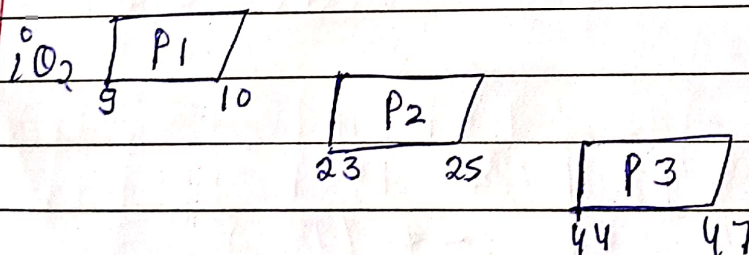 iO2 P1
9 10
P2
23 25
P3
44 47